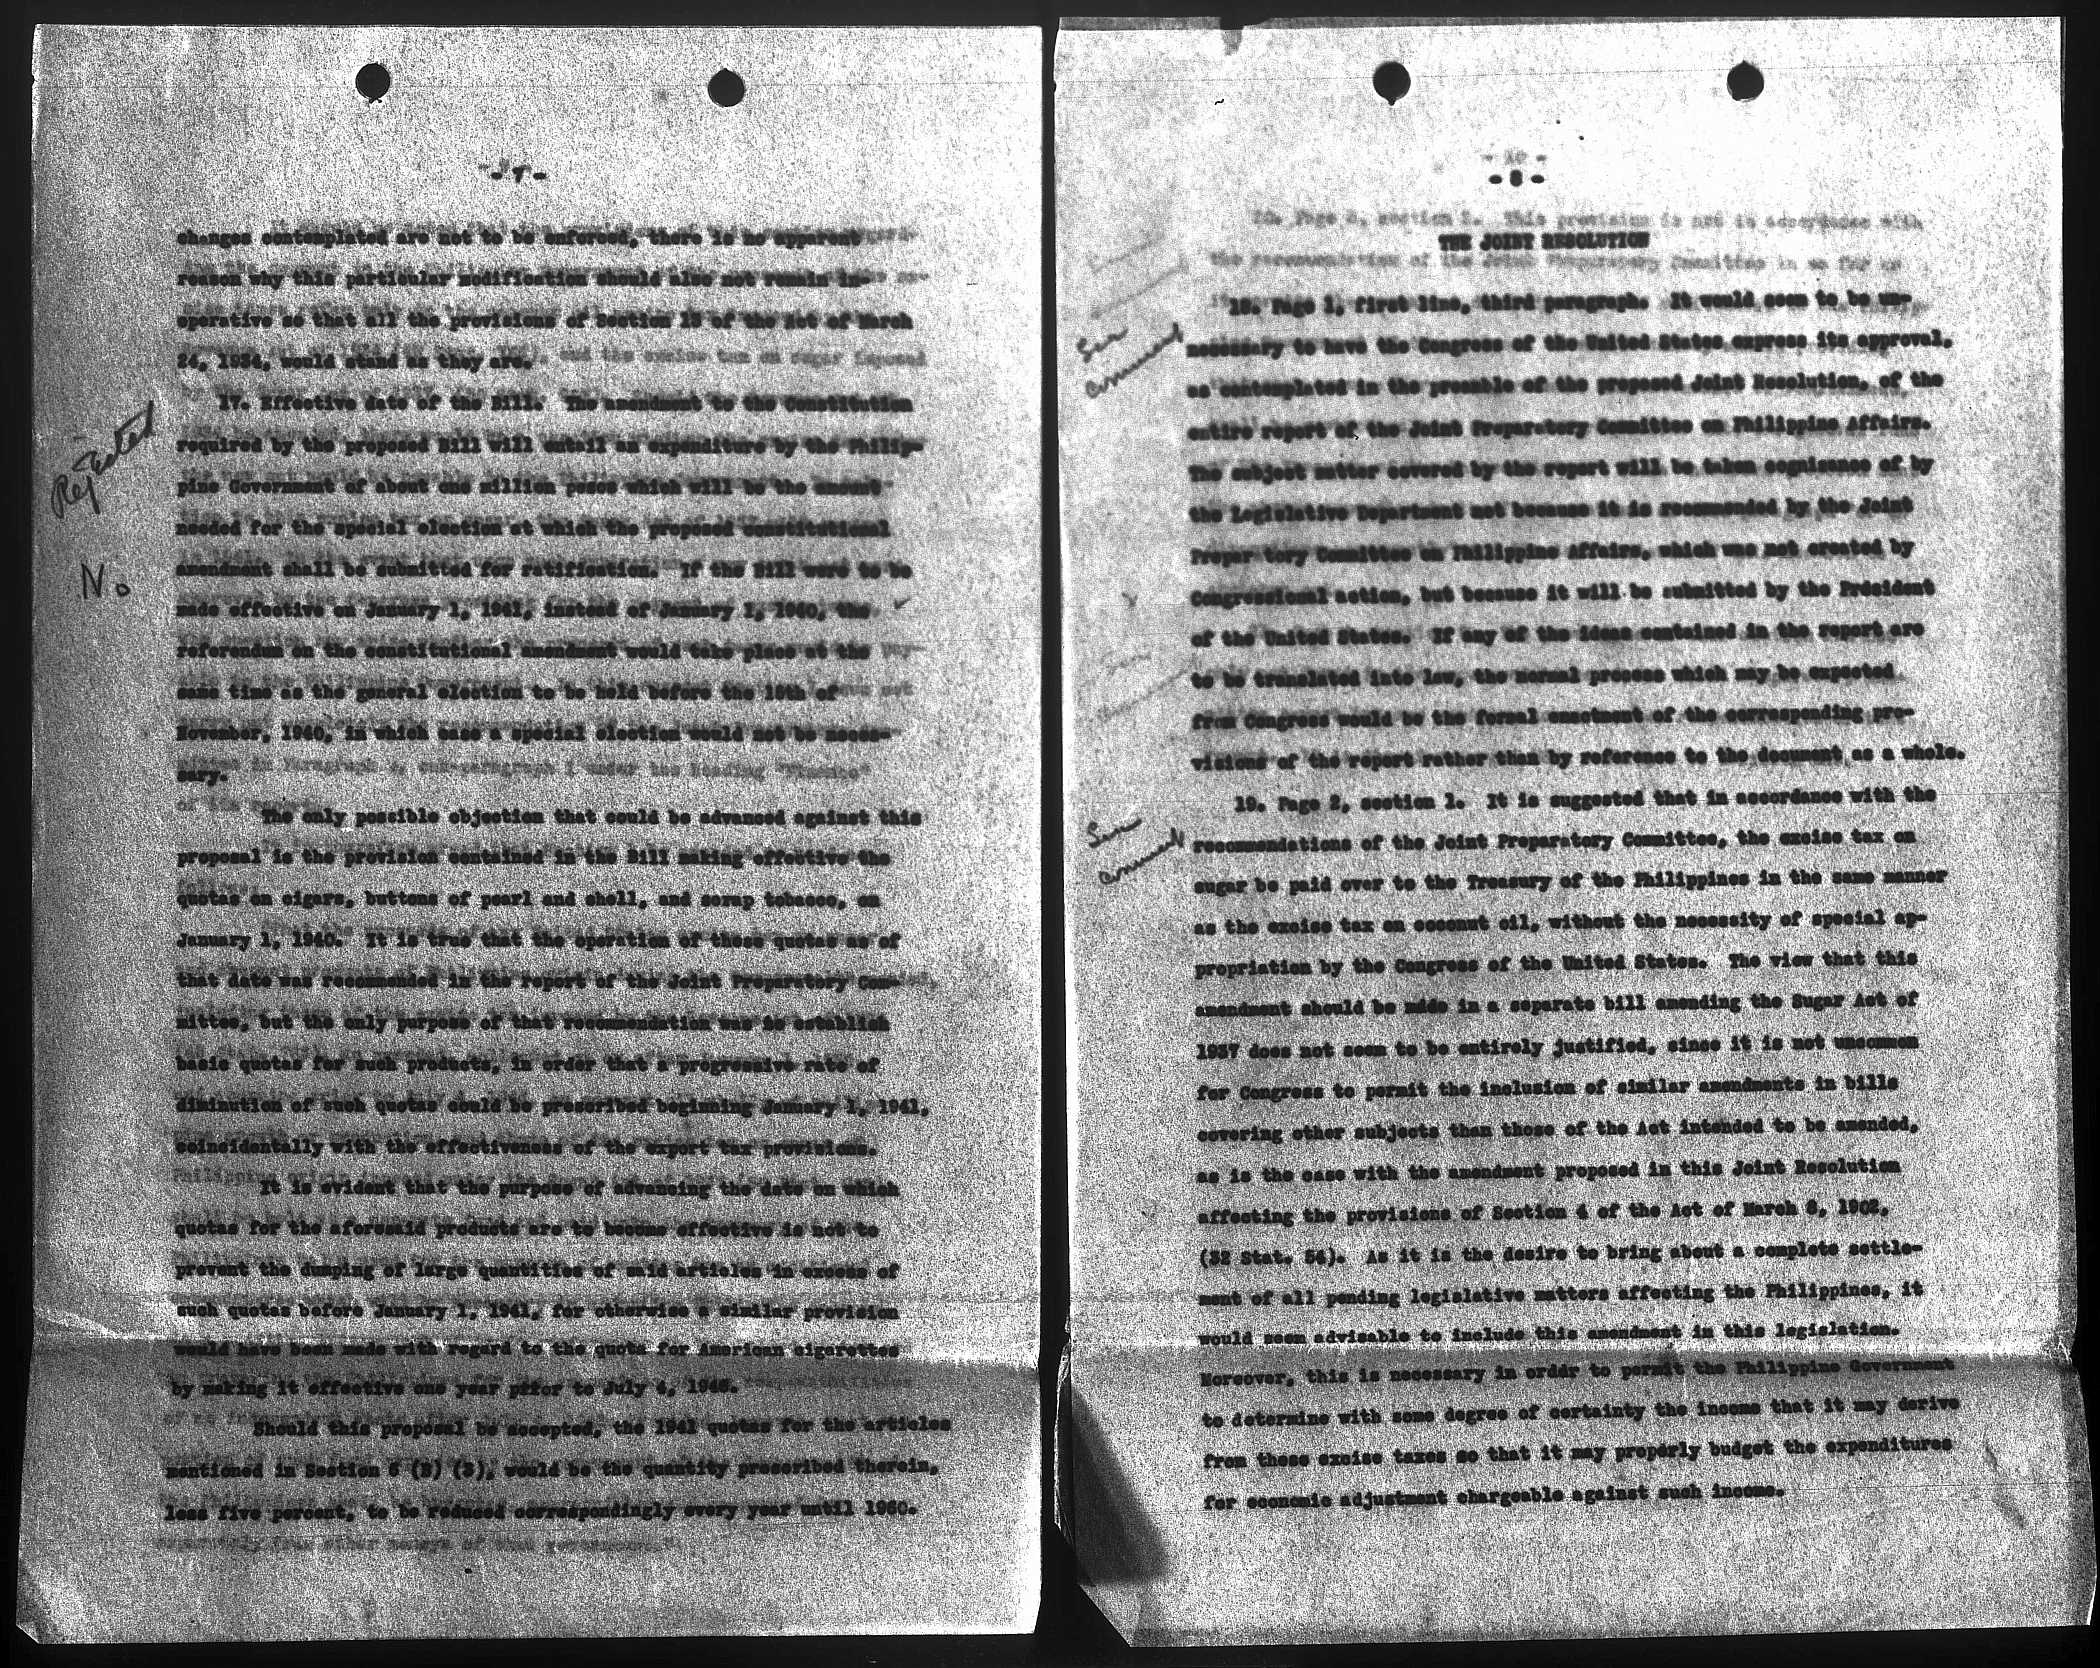 - 7 -
changes contemplated are not to be enforced, there is no apparent
reason why this particular modification should also not remain in-
operative so that all the provisions of Section 13 of the Act of March
24, 1934, would stand as they are.
Rejected
17. Effective date of the Bill. The amendment to the Constitution
required by the proposed Bill will entail an expenditure by the Philip-
pine Government of about one million pesos which will be the amount
needed for the special election at which the proposed constitutional
No
amendment shall be submitted for ratification. If the Bill were to be
made effective on January 1, 1941, instead of January 1, 1940, the
referendum on the constitutional amendment would take place at the
same time as the general election to be held before the 15th of
November, 1940, in which case a special election would not be neces-
sary.
The only possible objection that could be advanced against this
proposal is the provision contained in the Bill making effective the
quotas on cigars, buttons of pearl and shell, and scrap tobacco, on
January 1, 1940. It is true that the operation of these quotas as of
that date was recommended in the report of the Joint Preparatory Com-
mittee, but the only purpose of that recommendation was to establish
basic quotas for such products, in order that a progressive rate of
diminution of such quotas could be prescribed beginning January 1, 1941,
coincidentally with the effectiveness of the export tax provisions.
It is evident that the purpose of advancing the date on which
quotas for the aforesaid products are to become effective is not to
prevent the dumping of large quantities of said articles in excess of
such quotas before January 1, 1941, for otherwise a similar provision
would have been made with regard to the quota for American cigarettes
by making it effective one year prior to July 4, 1946.
Should this proposal be accepted, the 1941 quotas for the articles
mentioned in Section 6 (B) (3), would be the quantity prescribed therein,
less five percent, to be reduced correspondingly every year until 1960.
- 8 -
THE JOINT RESOLUTION
18. Page 1, first line, third paragraph. It would seem to be un-
See
comment
necessary to have the Congress of the United States express its approval,
as contemplated in the preamble of the proposed Joint Resolution, of the
entire report of the Joint Preparatory Committee on Philippine Affairs.
The subject matter covered by the report will be taken cognisance of by
the Legislative Department not because it is recommended by the Joint
Prepar tory Committee on Philippine Affairs, which was not created by
Congressional action, but because it will be submitted by the President
of the United States. If any of the ideas contained in the report are
to be translated into law, the normal process which may be expected
from Congress would be the formal enactment of the corresponding pro-
visions of the report rather than by reference to the document as a whole.
19. Page 2, section 1. It is suggested that in accordance with the
See
comment
recommendations of the Joint Preparatory Committee, the excise tax on
sugar be paid over to the Treasury of the Philippines in the same manner
as the excise tax on coconut oil, without the necessity of special ap-
propriation by the Congress of the United States. The view that this
amendment should be made in a separate bill amending the Sugar Act of
1937 does not seem to be entirely justified, since it is not uncommon
for Congress to permit the inclusion of similar amendments in bills
covering other subjects than those of the Act intended to be amended,
as is the case with the amendment proposed in this Joint Resolution
affecting the provisions of Section 4 of the Act of March 8, 1902,
(32 Stat. 54). As it is the desire to bring about a complete settle-
ment of all pending legislative matters affecting the Philippines, it
would seem advisable to include this amendment in this legislation.
Moreover, this is necessary in orddr to permit the Philippine Government
to determine with some degree of certainty the income that it may derive
from these excise taxes so that it may properly budget the expenditures
for economic adjustment chargeable against such income.